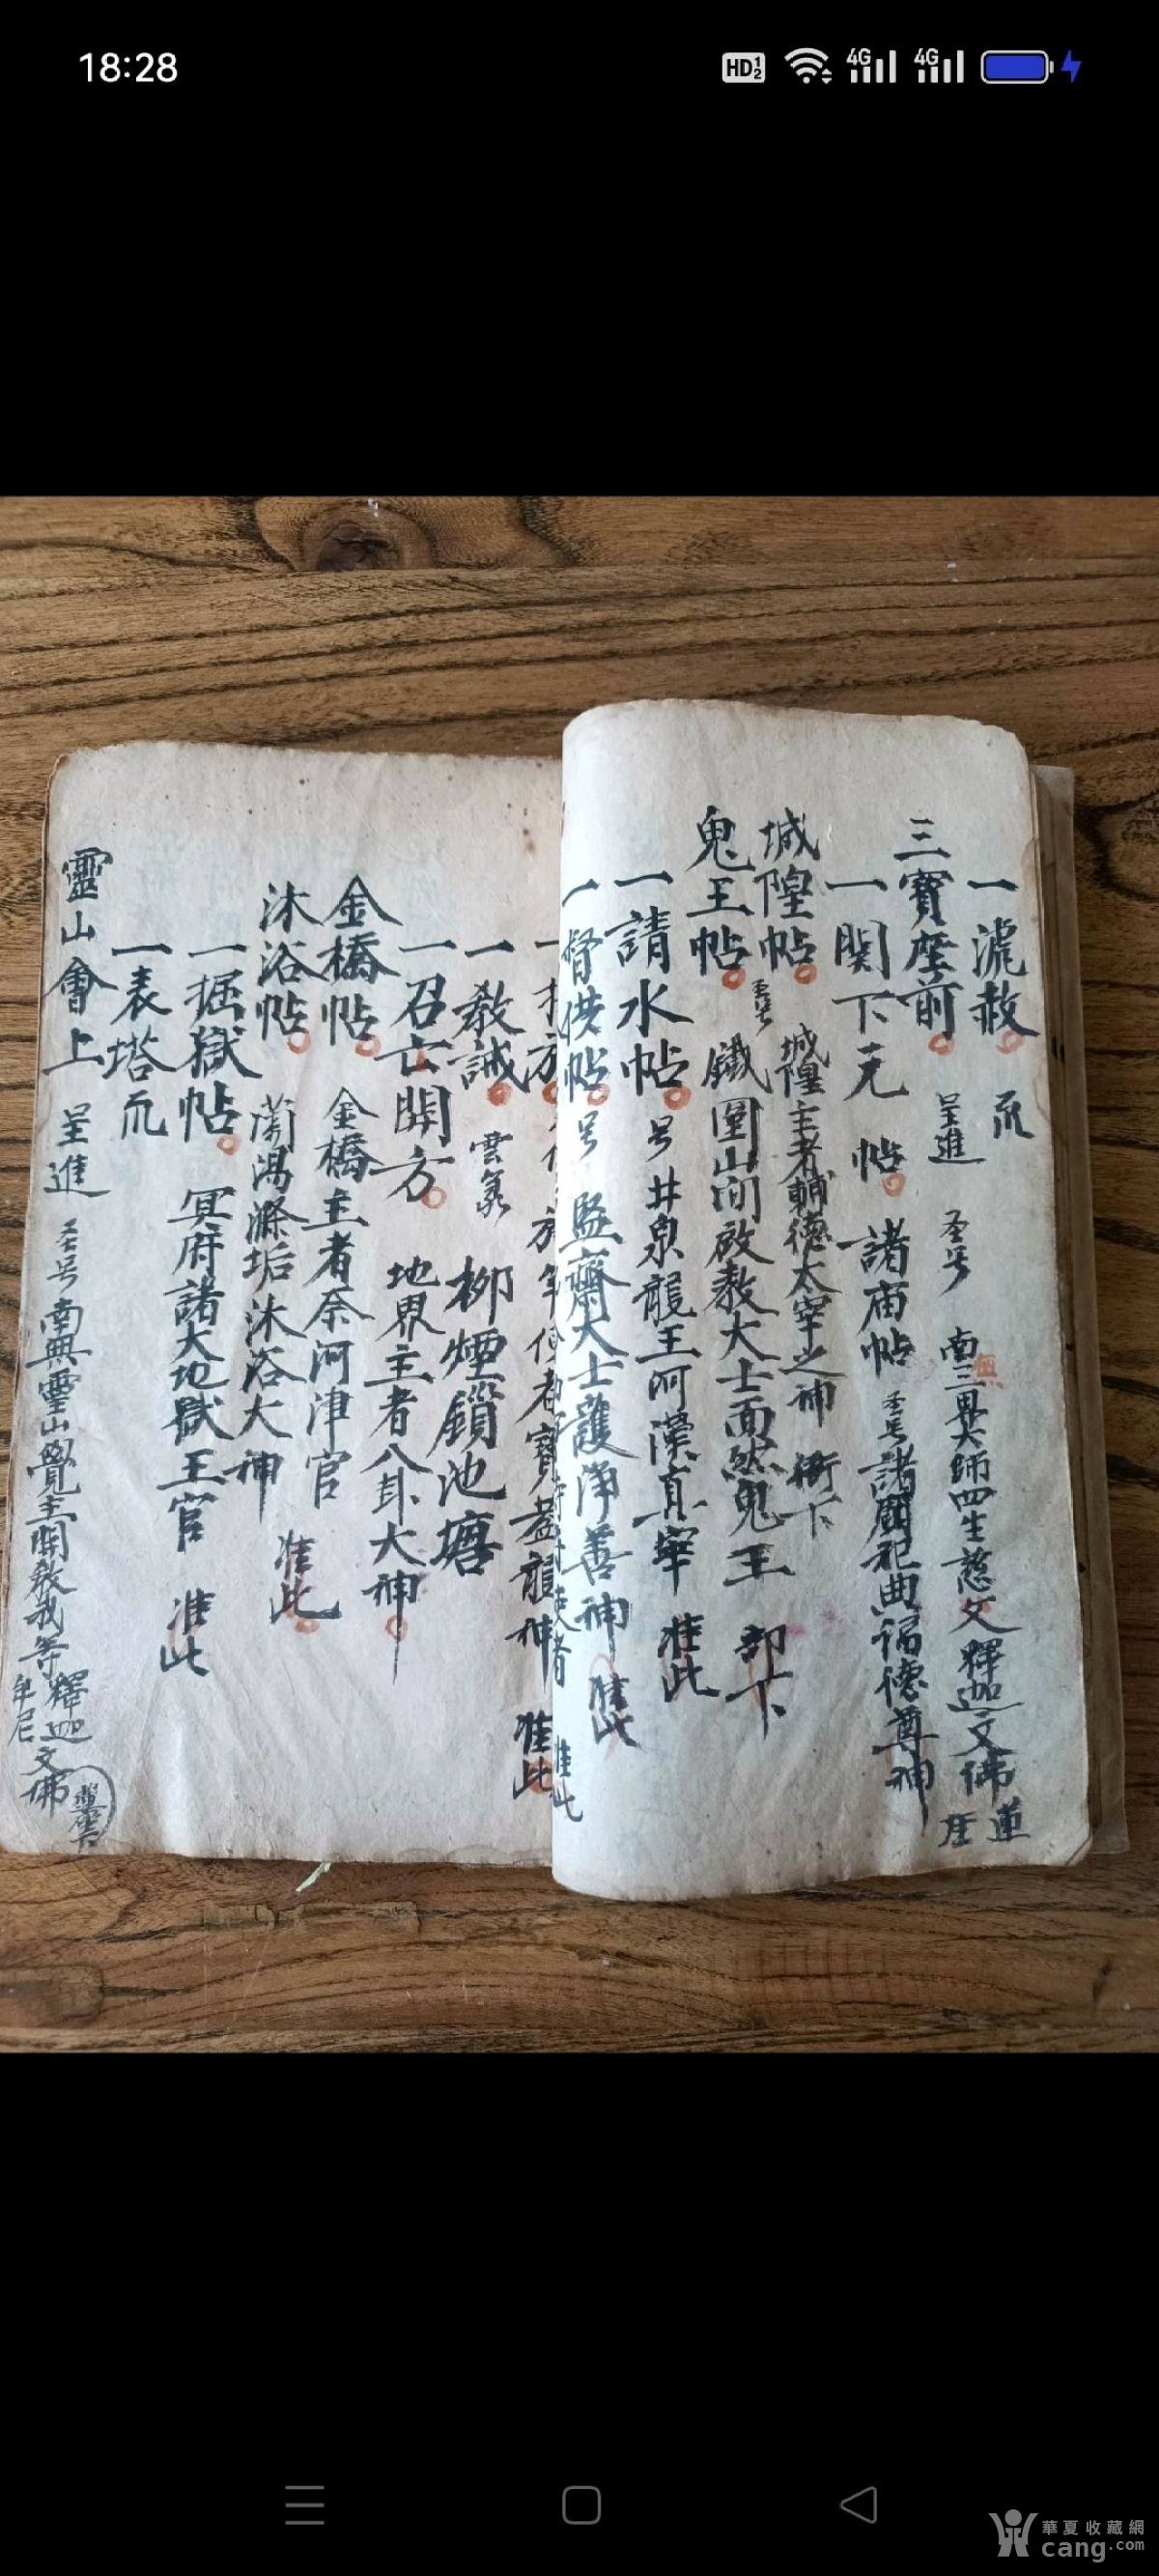 18:28
HD 1 2 4G 4G
一 赦
三寶座前 呈進 圣号 南無三界大師四生慈父釋迦文佛 蓮座
一関下元帖 諸庙帖 圣号 諸國祀典福德尊神
城隍帖 城隍主者輔德太宰之神 衝下
鬼王帖 圣号 鐵圍山间啟教大士面然鬼王 部下
一請水帖 号 井泉龍王河漢真宰 准此
一督供帖 号 監齋大士護淨善神 准此
准此
寶蓋龍神 准此
一教誡 雲 柳煙鎖池塘
一召亡開方 地界主者八卦大神
金橋帖 金橋主者奈河津官
沐浴帖 蘭湯滌垢沐浴大神 准此
一掘獄帖 冥府諸大地獄王官 准此
一表塔
靈山會上 呈進 圣号 南無靈山覺主開啟我等釋迦文佛
牟尼
華夏收藏網
cang.com